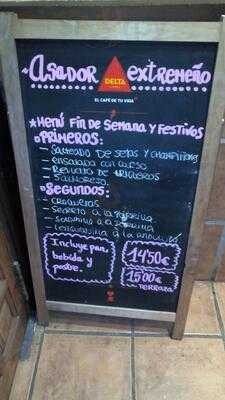 Asador extremeño
DELTA
EL CAFÉ DE TU VIDA
*Menú Fin de Semana y Festivos
PRIMEROS:
- Salteado de setas y champiñones
- ensalada con queso
- Revuelto de trigueros
- Salmorejo
SEGUNDOS:
- Secreto a la parrilla
- a la parrilla
- a la
Incluye pan,
bebida y
postre.
14'50€
15'00€
TERRAZA